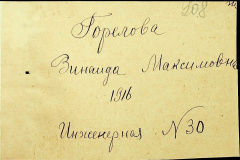 208
Горелова
Зинаида Максимовна
1916
Инженерная №30